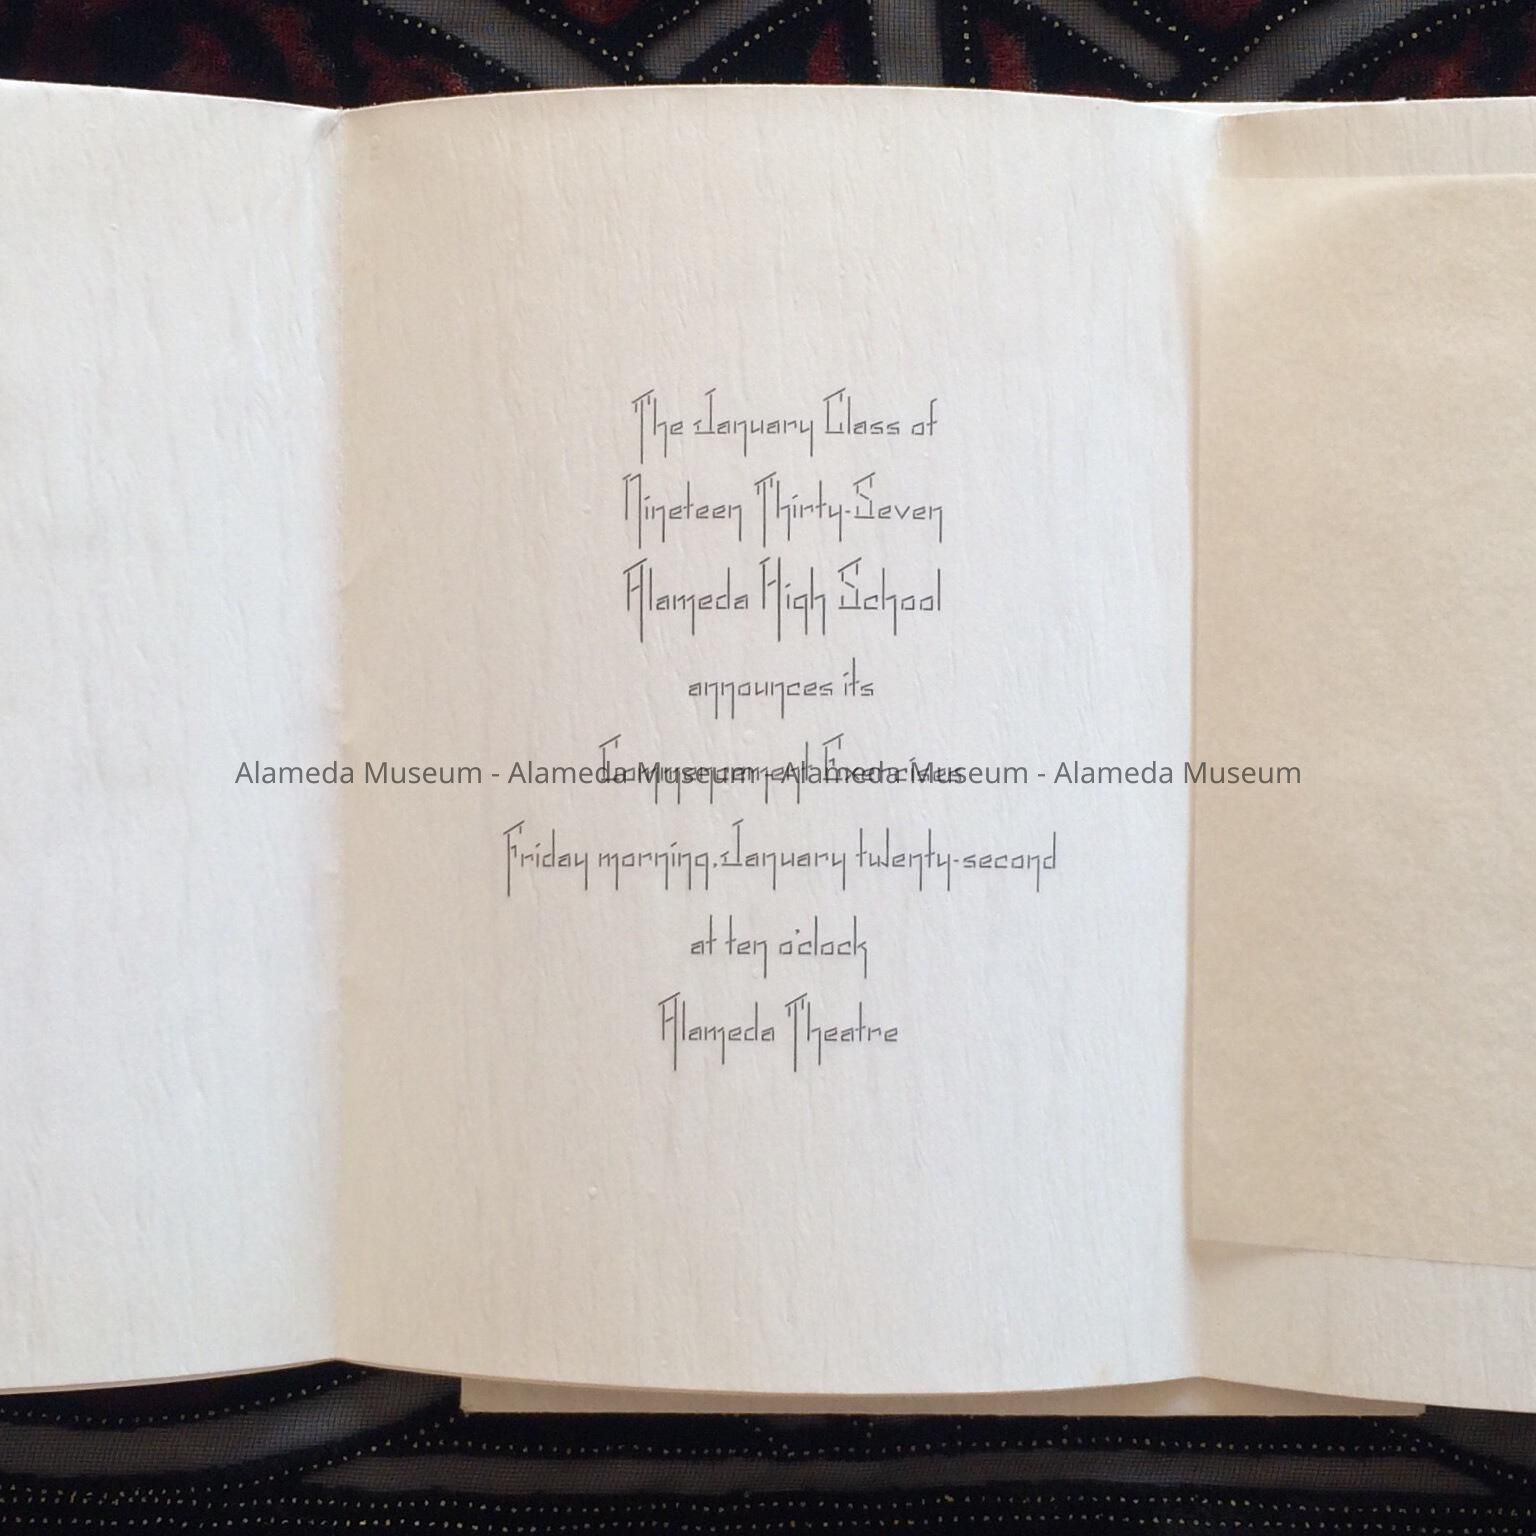 The January Class of
Nineteen Thirty-Seven
Alameda High School
announces its
Commencement Exercises
Alameda Museum - Alameda Museum - Alameda Museum - Alameda Museum
Friday morning, January twenty-second
at ten o'clock
Alameda Theatre